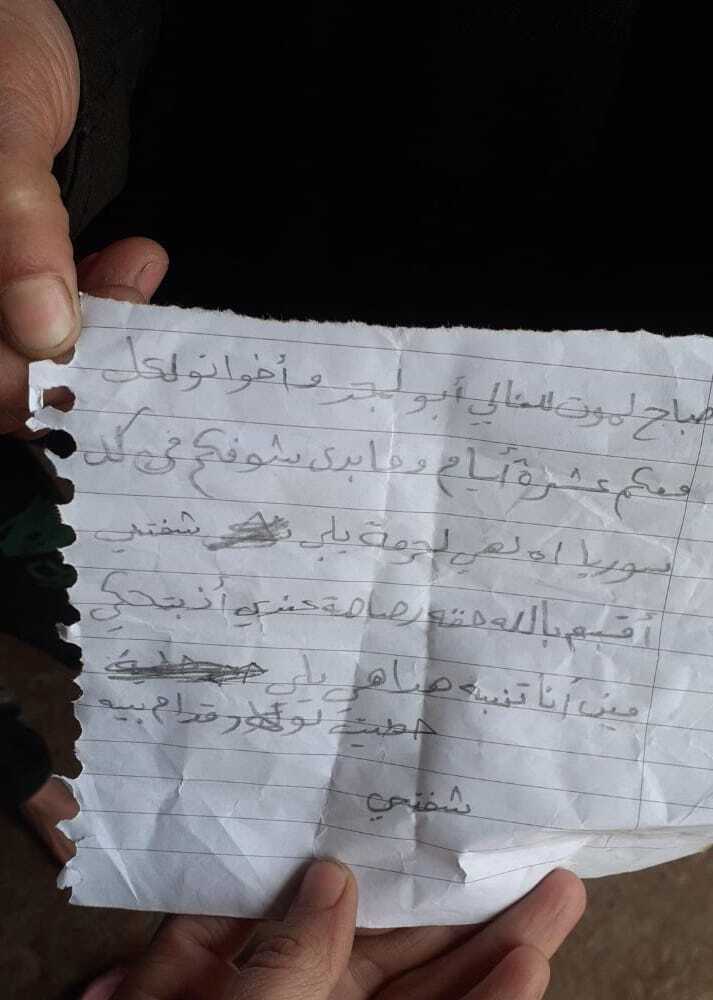 صباح لموت للغالي أبو لجد وأخوانو لكل
معكم عشرة أيام وما بدي شوفكم في كل
سوريا اه لهي لحرمة يلي شفتي
أقسم بالله حقه رصاصة عندي
مين أنا تنبه هداهي يلي
حطيت قدام بيه
شفتي